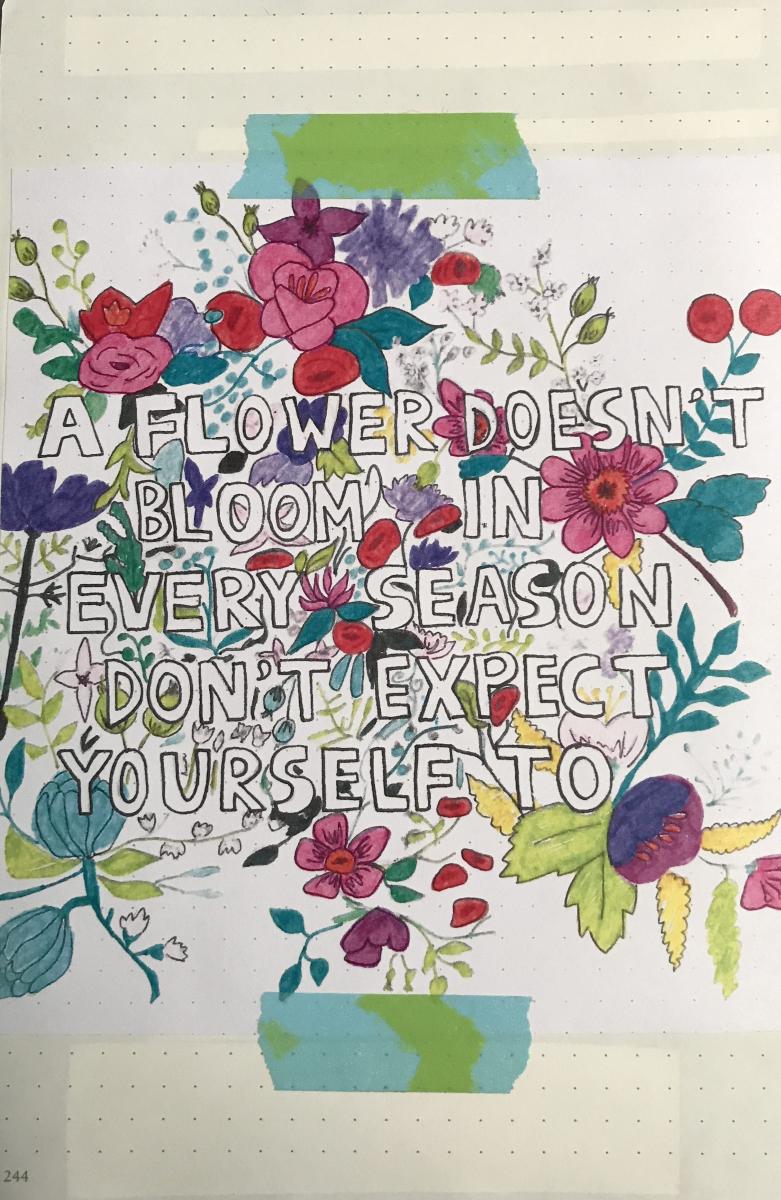 A FLOWER DOESN'T
BLOOM IN
EVERY SEASON
DON'T EXPECT
YOURSELF TO
244